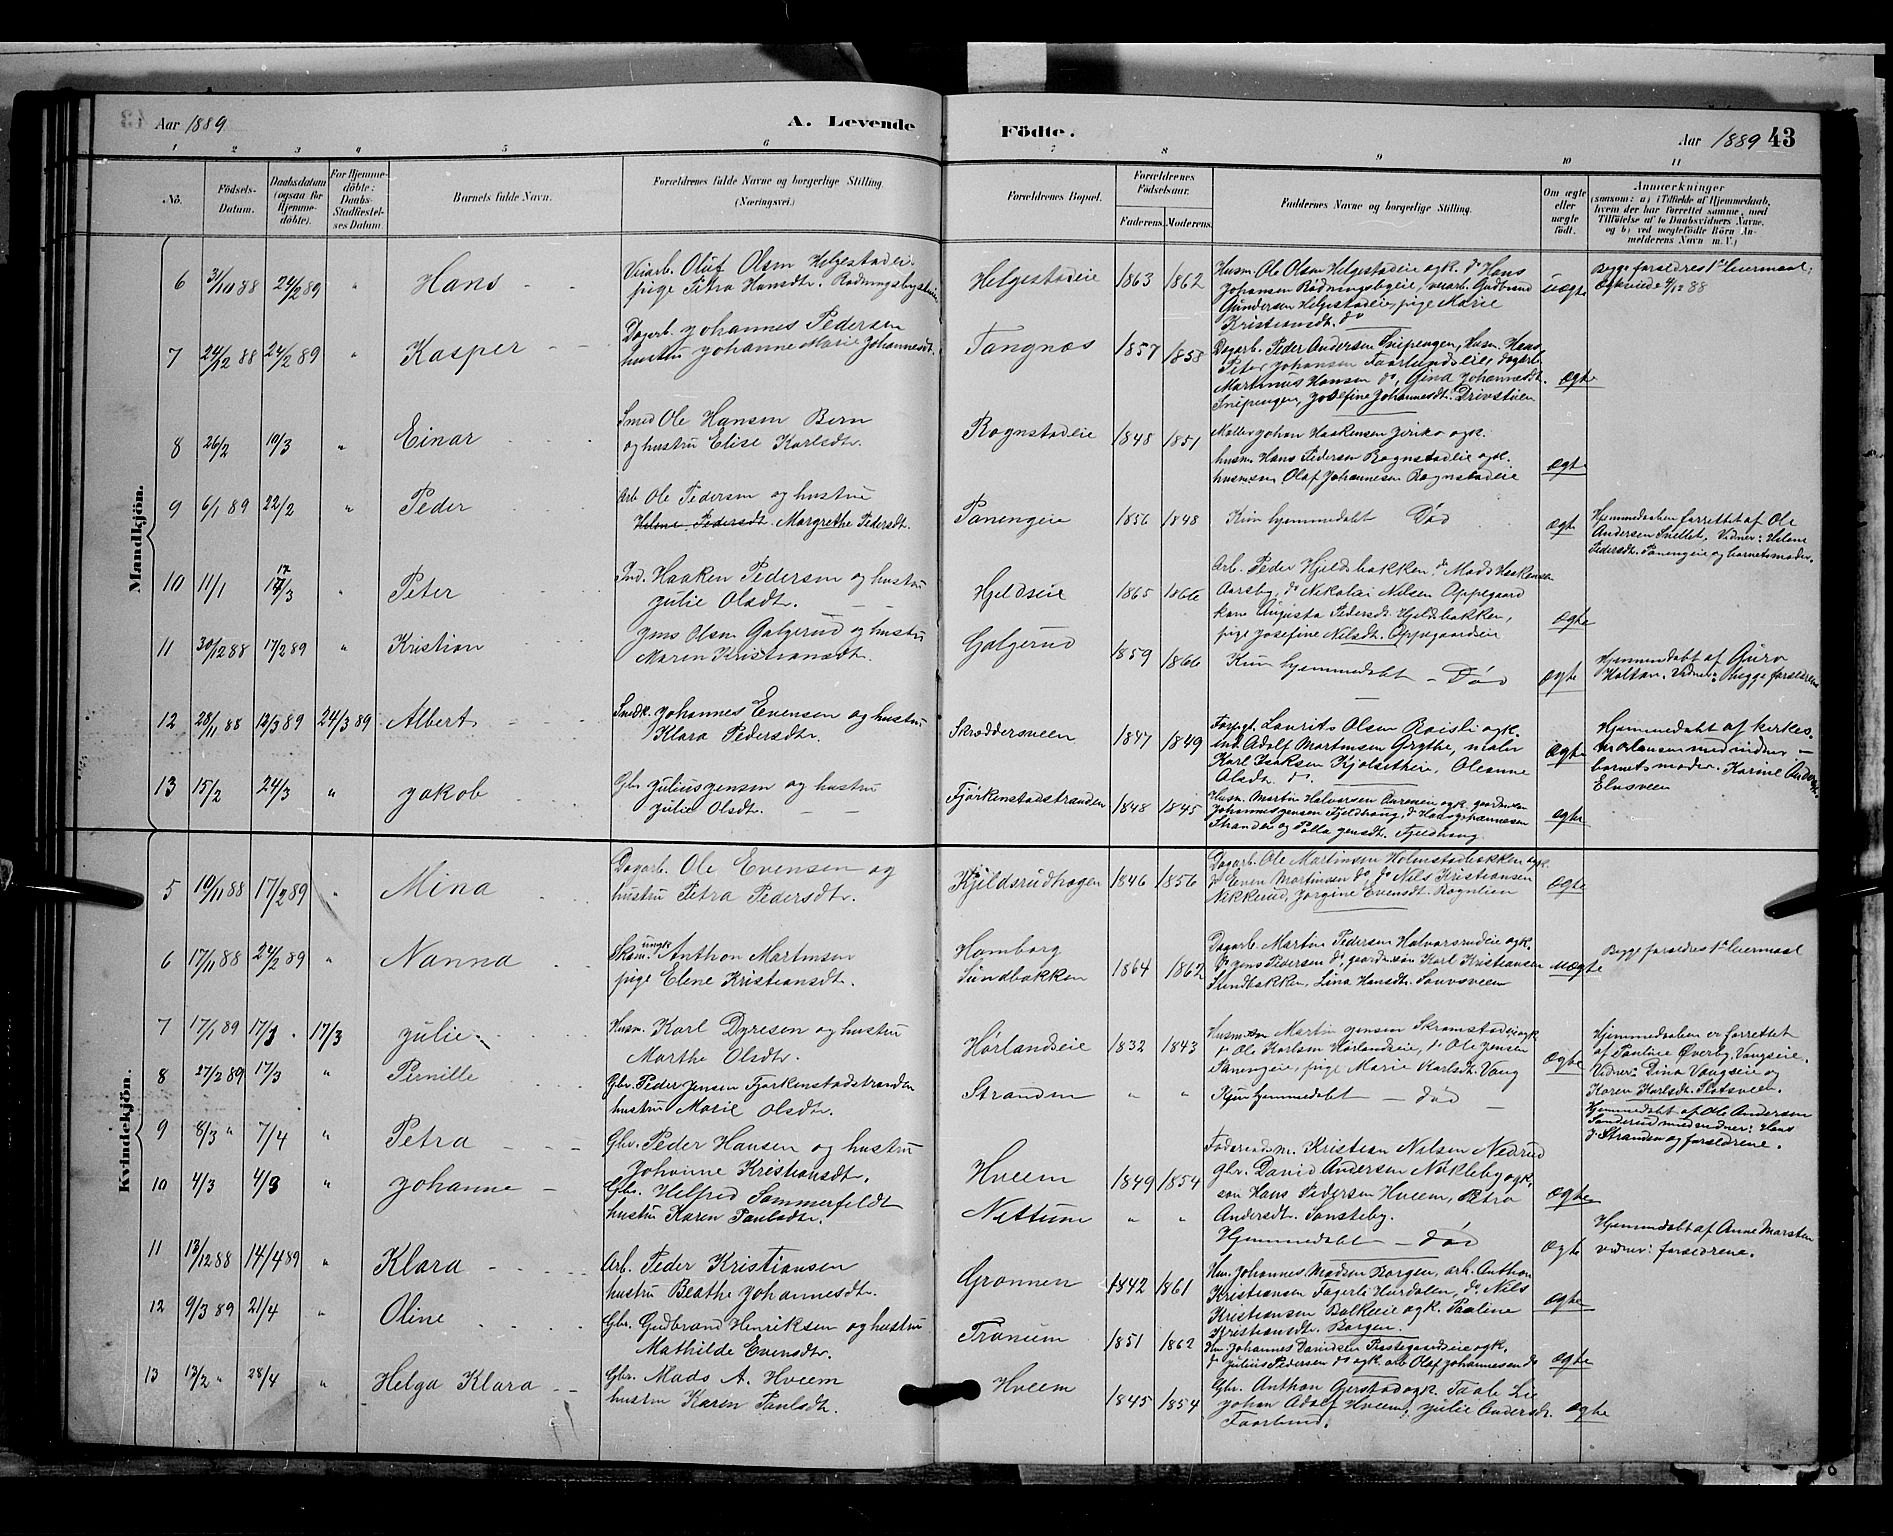 Aar 1889
A. Levende
Födte.
Aar 1889 43
1 2 3 4 5 6 7 8 9 10 11
No.
Födsels-
Datum.
Daabsdatum
(ogsaa for
Hjemme-
döbte).
For Hjemme-
döbte:
Daabs-
Stadfæstel-
ses Datum.
Barnets fulde Navn.
Forældrenes fulde Navne og borgerlige Stilling.
(Næringsvei.)
Forældrenes Bopæl.
Forældrenes
Födselsaar.
Faderens. Moderens.
Faddernes Navne og borgerlige Stilling.
Om ægte
eller
uægte
födt.
Anmærkninger
(saasom: a) i Tilfælde af Hjemmedaab,
hvem der har forrettet samme, med
Tilföielse af to Daabsvidners Navne,
og b) ved uægtefödte Börn An-
melderens Navn m. V.)
Mandkjön.
6 31/10 88 24/2 89 " Hans
Veiarb. Oluf Olsen Helgestadeie
pige Petra Hansdt. Rødningsbyeie
Helgestadeie 1863 1862
Husm. Ole Olsen Helgestadeie ogk. do Hans
Johansen Rødningsbyeie, veiarb. Gudbrand
Gundersen Helgestadeie, pige Marie
Kristiansdt. do
uægte
Begge forældres 1ste leiermaal;
Ægteviede 9/12 88
7 24/12 88 24/2 89 " Kasper
Dagarb. Johannes Pedersen
hustru Johanne Marie Johannesdt.
Tangnæs 1857 1858
Dagarb. Peder Andersen Snipengen, Husm. Hans
Peter Johansen Faarlundseie, dagarb.
Martinus Hansen do, Gina Johannesdt.
Snipengen, Josefine Johannesdt. Drivstuen
ægte
8 26/2 10/3 " Einar
Smed Ole Hansen Bern
og hustru Elise Karlsdt.
Rognstadeie 1848 1851
Møller Johan Haakensen Jeriko ogk.
husm. Hans Pedersen Rognstadeie ogk.
husmsøn Olaf Johannesen Rognstadeie
ægte
9 6/1 89 22/2 " Peder
Arb. Ole Pedersen og hustru
Helene Pedersdt. Margrethe Pedersdt.
Panengeie 1856 1848
Kun hjemmedøbt Død
ægte
Hjemmedaaben forrettet af Ole
Andersen Snellet, Vidner: Helene
Pedersdt. Panengeie og barnets moder.
10 11/1 17/3 " Peter
Ind. Haaken Pedersen og hustru
Julie Olsdt.
Hjeldseie 1865 1866
Arb. Peder Hjeldsbakken, do Mads Haakensen
Aarsby, do Nikolai Nilsen Oppegaard
kone Augusta Pedersdt. Hjeldsbakken,
pige Josefine Nilsdt. Oppegaardeie
ægte
11 30/12 88 17/2 89 " Kristian
Jens Olsen Galgerud og hustru
Maren Kristiansdt.
Galgerud 1859 1866
Kun hjemmedøbt – Død
ægte
Hjemmedøbt af Guro
Holtan, Vidner: begge forældrene
12 28/11 88 12/3 89 24/3 89 Albert
Snedk. Johannes Evensen og hustru
Klara Pedersdt.
Skræddersveen 1847 1849
Forpgt. Laurits Olsen Roisli ogk.
ind. Adolf Martinsen Grythe, maler
Karl Isaksen Kjølsetheie, Oleanne
Olsdt. do
ægte
Hjemmedøbt af kirkes.
med vidner –
barnets moder. Karine Andersdt.
Elvsveen
13 15/2 24/3 " Jakob
Gbr. Julius Jensen og hustru
Julie Olsdt.
Fjørkenstadstranden 1848 1845
Husm. Martin Halvorsen ogk. gaardmsøn
Johannes Jensen Fjeldhaug, do Hans Johannesen
Stranden og Polla Jensdt. Fjeldhaug
ægte
Kvindekjön.
5 10/11 88 17/2 89 " Mina
Dagarb. Ole Evensen og
hustru Petra Pedersdt.
Kjeldsrudhagen 1846 1856
Dagarb. Ole Martinsen Holmstadbakken ogk.
do Even Martinsen do, do Nils Kristiansen
Nikkerud, Jørgine Evensdt. Rognlien
ægte
6 17/11 88 24/2 89 " Nanna
Skom. ungk. Anthon Martinsen
pige Elene Kristiansdt.
Homborg
Sundbakken 1864 1862
Dagarb. Martin Pedersen Halvorsrudeie ogk.
do Jens Pedersen do, gaardmsøn Karl Kristiansen
Sundbakken, Lina Hansdt. Sauvsveen
uægte
Begge forældres 1ste leiermaal
7 17/1 89 17/3 17/3 Julie
Husm. Karl Dyresen og hustru
Marthe Olsdt.
Hørlandseie 1832 1843
Husmsøn Martin Jensen Skramstadeie ogk
do Ole Karlsen Hørlandseie, do Ole Jensen
Panengeie, pige Marie Karlsdt. Vang
ægte
Hjemmedaaben er forrettet
af Pauline Øverby, Vangseie.
Vidner: Dina Vangseie og
Karen Karlsdt. Slotsveen.
8 27/2 89 17/3 " Pernille
Gbr. Peder Jensen Fjørkenstadstranden
hustru Marie Olsdt.
Stranden " "
Kun hjemmedøbt – død –
Hjemmedøbt af Ole Andersen
Sønderud med vidner: Hans
J. Stranden og forældrene.
9 8/3 " 7/4 " Petra
Gbr. Peder Hansen og hustru
Johanne Kristiansdt.
Hveem 1849 1854
Føderaadsm. Kristian Nilsen Nedrud
gbr. David Andersen Nøkleby ogk,
søn Hans Pedersen Hveem, Petra
Andersdt. Sønsteby.
ægte
10 4/3 4/3 " Johanne
Gbr. Helfred Sommerfeldt
hustru Karen Paulsdtr.
Nettum " "
Hjemmedøbt – død
ægte
Hjemmedøbt af Anne Marsten
vidner: forældrene.
11 13/12 88 14/4 89 " Klara
Arb. Peder Kristiansen
hustru Beathe Johannesdt.
Grønnen 1842 1861
Hm. Johannes Madsen Borgen, arb. Anthon
Kristiansen Fagerli Hurdalen, do Nils
Kristiansen Balkeie ogk. Pauline
Kristiansdt. Borgen.
ægte
12 9/3 89 21/4 " Oline
Gbr. Gudbrand Henriksen og hustru
Mathilde Evensdtr.
Tranum 1851 1862
Hm. Johannes Davidsen Præstegaardseie ogk.
do Julius Pedersen do ogk. arb Olaf Johannesen do
ægte
13 13/2 " 28/4 " Helga Klara
Gbr. Mads A. Hveem
hustru Karen Paulsdt.
Hveem 1845 1854
Gbr. Anthon Gerstad ogk. Paale Lie
Johan Adolf Hveem, Julie Andersdt.
Faarlund.
ægte